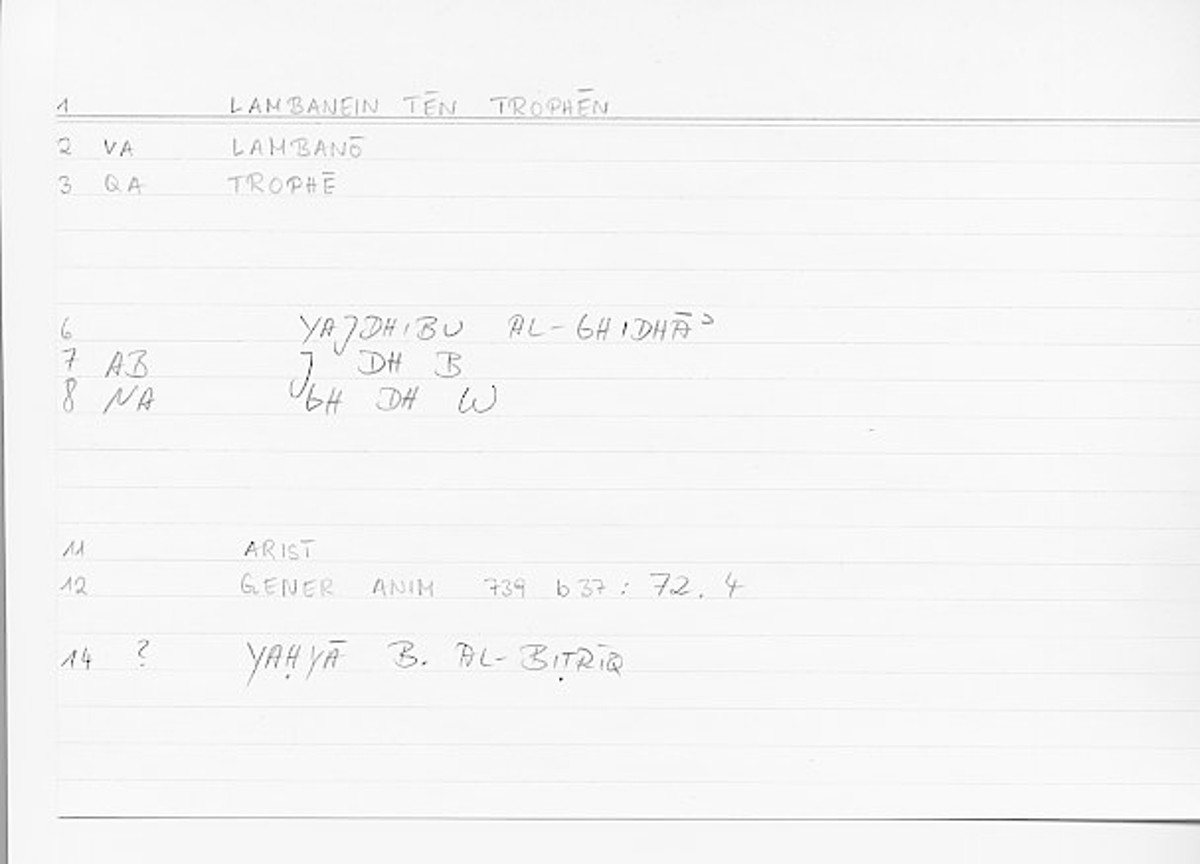 1 LAMBANEIN TĒN TROPHĒN
2 VA LAMBANŌ
3 QA TROPHĒ
6 YAJDHIBU AL-GHIDHĀʾ
7 AB J DH B
8 NA GH DH W
11 ARIST
12 GENER ANIM 739 b 37 : 72. 4
14 ? YAḤYĀ B. AL-BIṬRĪQ